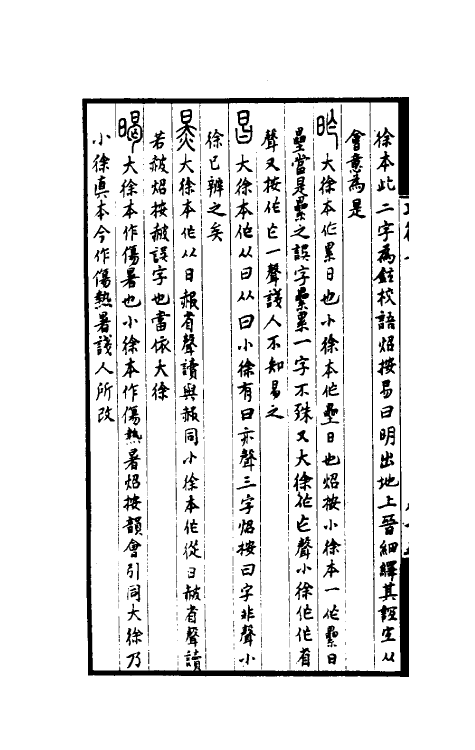 徐本此二字為鉉校語炤按易曰明出地上晉細繹其誼宜从
會意為是
昨 大徐本作累日也小徐本作壘日也炤按小徐本一作纍日
壘當是纍之誤字纍累一字不殊又大徐作乍聲小徐作作省
聲又按作乍一聲譌人不知易之
昌 大徐本作从日从曰小徐有曰亦聲三字炤按曰字非聲小
徐已辨之矣
大徐本作从日赧省聲讀與赧同小徐本作從日赧省聲讀
若赧炤按赧誤字也當依大徐
暍 大徐本作傷暑也小徐本作傷熱暑炤按韻會引同大徐乃
小徐真本今作傷熱暑譌人所改